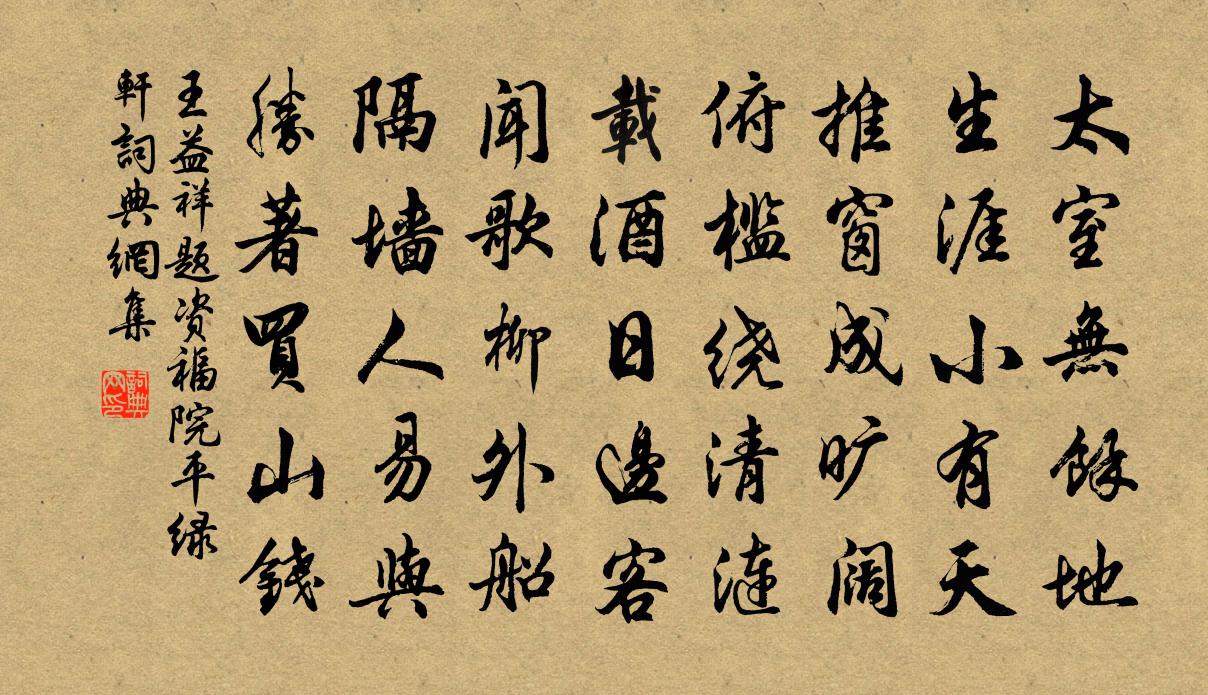 太室無餘地
生涯小有天
推窗成旷阔
俯槛绕清涟
載酒日邊客
闻歌柳外船
隔墙人易與
勝著買山錢
王益祥题资福院平绿
軒詞典網集
詞典
网印